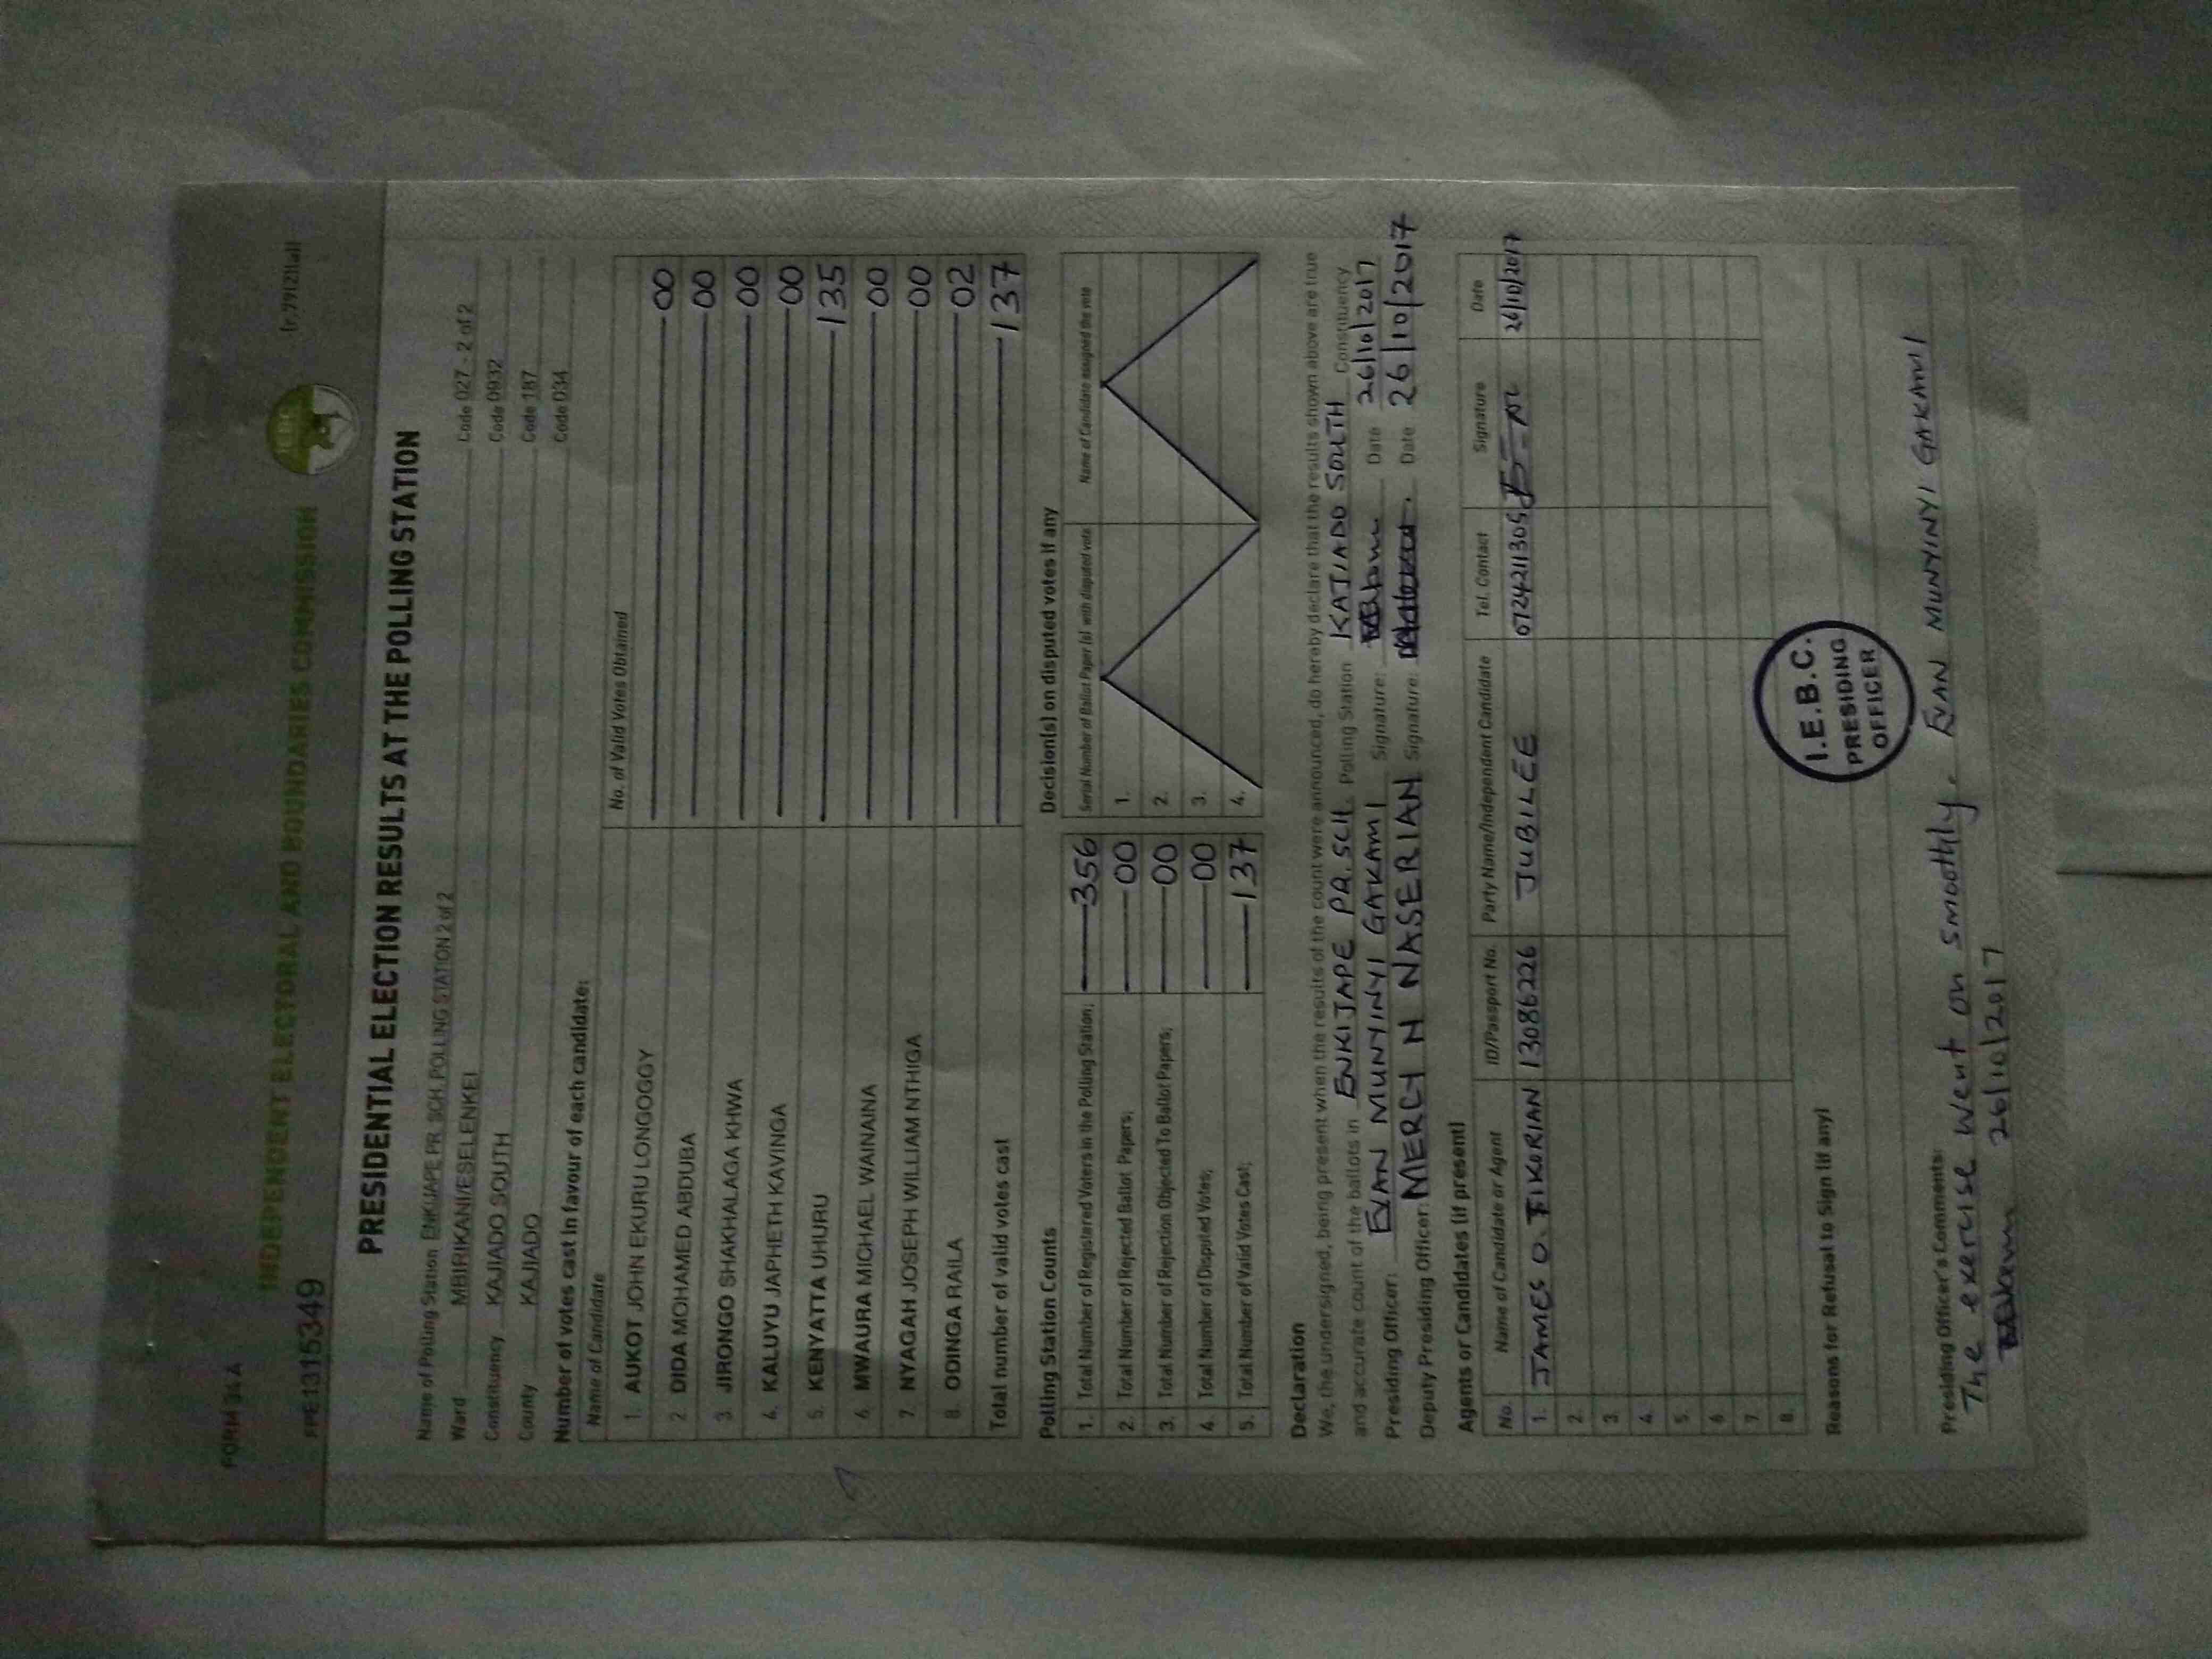 FORM 34 A
(r.79(2)(a))
INDEPENDENT ELECTORAL AND BOUNDARIES COMMISSION
IEBC
PRE1315349
PRESIDENTIAL ELECTION RESULTS AT THE POLLING STATION
Name of Polling Station ENKIJAPE PR. SCH. POLLING STATION 2 of 2 Code 027 - 2 of 2
Ward MBIRIKANI/ESELENKEI Code 0932
Constituency KAJIADO SOUTH Code 187
County KAJIADO Code 034
Number of votes cast in favour of each candidate:
Name of Candidate No. of Valid Votes Obtained
1. AUKOT JOHN EKURU LONGOGGY 00
2. DIDA MOHAMED ABDUBA 00
3. JIRONGO SHAKHALAGA KHWA 00
4. KALUYU JAPHETH KAVINGA 00
5. KENYATTA UHURU 135
6. MWAURA MICHAEL WAINAINA 00
7. NYAGAH JOSEPH WILLIAM NTHIGA 00
8. ODINGA RAILA 02
Total number of valid votes cast 137
Polling Station Counts
1. Total Number of Registered Voters in the Polling Station; 356
2. Total Number of Rejected Ballot Papers; 00
3. Total Number of Rejection Objected To Ballot Papers; 00
4. Total Number of Disputed Votes; 00
5. Total Number of Valid Votes Cast; 137
Decision(s) on disputed votes if any
Serial Number of Ballot Paper (s) with disputed vote Name of Candidate assigned the vote
1.
2.
3.
4.
Declaration
We, the undersigned, being present when the results of the count were announced, do hereby declare that the results shown above are true
and accurate count of the ballots in ENKIJAPE PR. SCH. Polling Station KAJIADO SOUTH Constituency
Presiding Officer: EVAN MUNYINYI GAKAMI Signature: Date 26/10/2017
Deputy Presiding Officer: MERCY N NASERIAN Signature: Date 26/10/2017
Agents or Candidates (if present)
No. Name of Candidate or Agent ID/Passport No. Party Name/Independent Candidate Tel. Contact Signature Date
1. JAMES O. TIKORIAN 13086226 JUBILEE 0724211305 26/10/2017
2.
3.
4.
5.
6.
7.
8.
Reasons for Refusal to Sign (if any)
I.E.B.C.
PRESIDING
OFFICER
Presiding Officer's Comments:
The exercise went on smoothly. EVAN MUNYINYI GAKAMI
26/10/2017